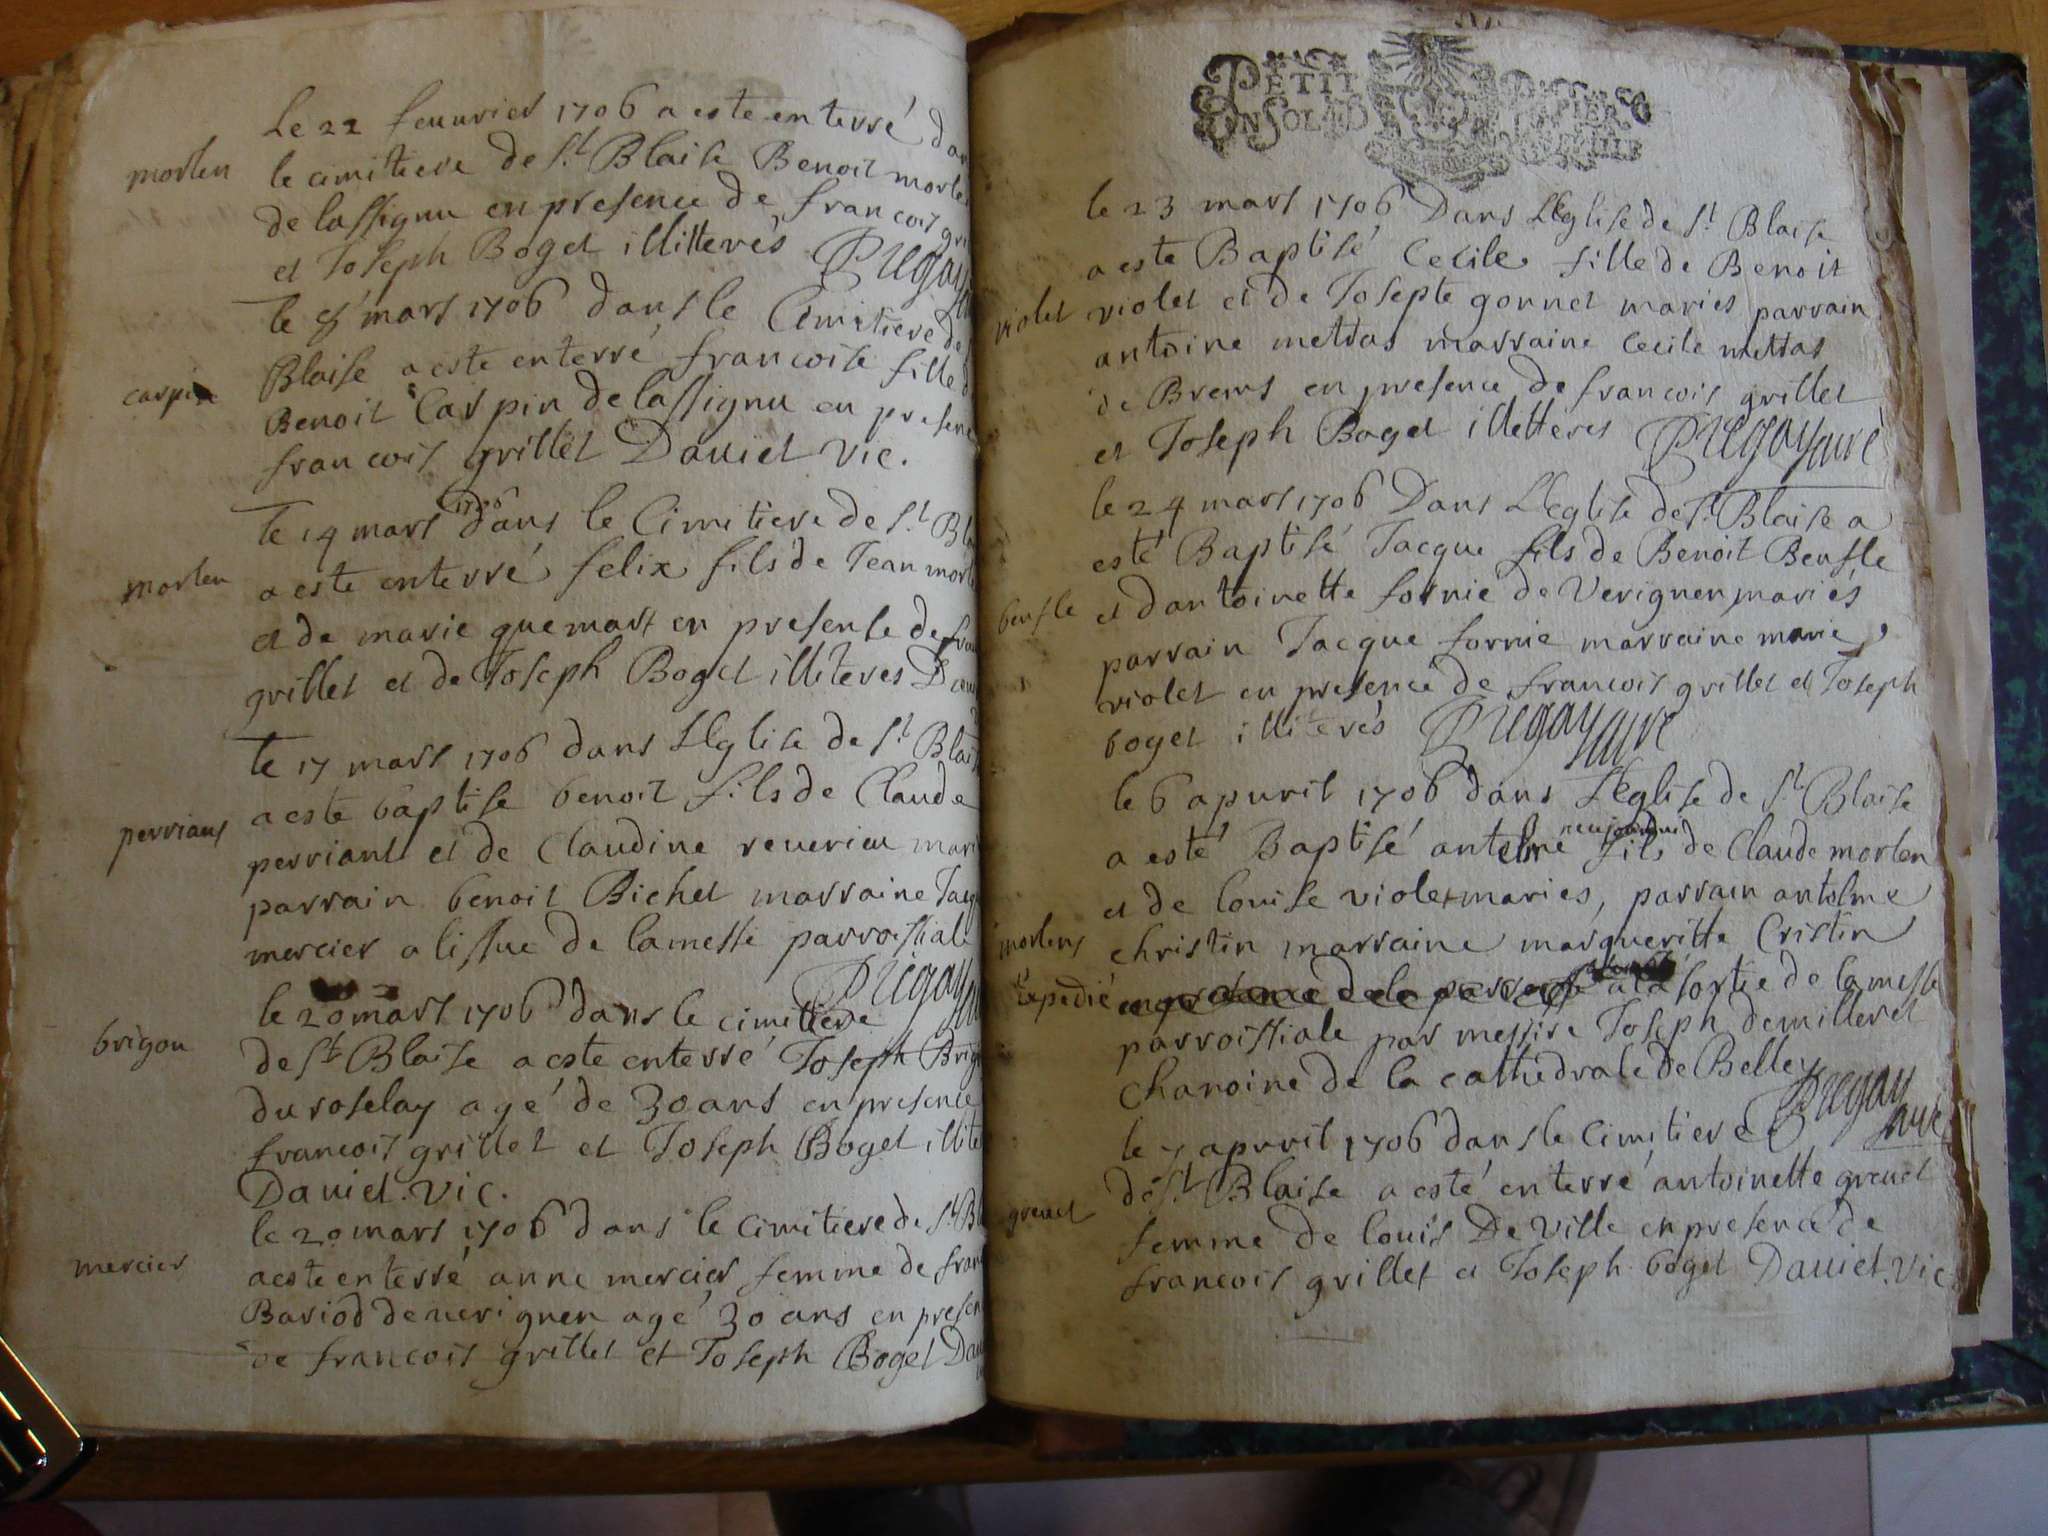 Le 22 feuurier 1706 a este enterré dans
morten
le cimitiere de St Blaise Benoit morten
de lassignu en presence de francois
et Joseph Boget illitterés
le mars 1706 dans le Cimitiere de
Blaise a este enterré francoise fille
carpin
Benoit Carpin de lassignu en presen
francois grillet Dauiet vic.
le 14 mars 1706 dans le Cimitiere de St Bla
morten
a este enterré felix fils de Jean mort
et de marie quemart en presense de fran
grillet et de Joseph Boget illiteres Dau
le 17 mars 1706 dans LEglise de St Blais
a este baptise benoit fils de Claude
perriant
perriant et de Claudine reuerieu mari
parrain benoit Bichet marraine Jacq
mercier a lissue de la messe parroissiale
le 20 mars 1706 dans le cimitiere
brigon
de St Blaise a este enterré Joseph Brig
du roselay agé de 30 ans en presence
francois grillet et Joseph Boget illite
Dauiet. Vic.
le 20 mars 1706 dans le cimitiere de St Bl
mercier
a este enterré anne mercier femme de fran
Bariod de uerignen agé 30 ans en presen
de francois grillet et Joseph Boget Dau
PETIT PAPIER
le 23 mars 1706 Dans LEglise de St Blaise
a este Baptisé Cecile fille de Benoit
violet
violet et de Josepte gonnet mariés parrain
antoine mettas marraine Cecile mettas
de Brens en presence de francois grillet
et Joseph Boget illetteres
le 24 mars 1706 Dans LEglise de St Blaise a
esté Baptisé Jacque fils de Benoit Beusle
beusle
et dantoinette fornie de Verignen mariés
parrain Jacque fornie marraine marie
violet en presence de francois grillet et Joseph
boget illiterés
le 6 apuril 1706 dans LEglise de St Blaise
a esté Baptisé antelme fils de Claude morten
et de louise violet maries, parrain antelme
mortens
christin marraine margueritte Cristin
expedié
a la sortie de la messe
parroissiale par messire Joseph demilleret
chanoine de la cathedrale de Belley
le 7 apvril 1706 dans le Cimitiere
de St Blaise a esté enterré antoinette greuet
greuet
femme de louis De Ville en presence de
francois grillet et Joseph boget Dauiet. Vic